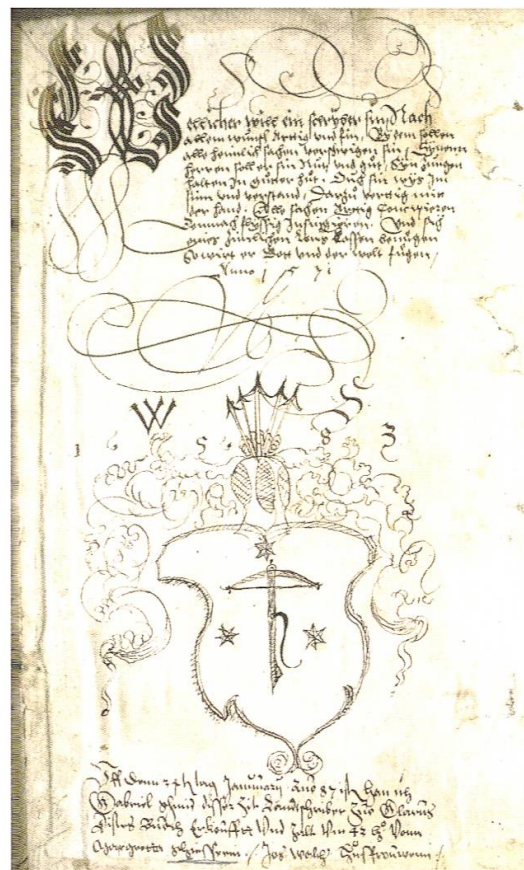 Wellicher will ein schryber sin / Nach
allem wunsch artig und fin / By dem sollen
alle heimlich sachen verschwigen sin / Synem
herren soll er sin Nutz und gůt / Syn zungen
halten In gůter hůt / Ouch sin wys Im
sinn und verstand / Darzů vertig mit
der hand / Alle sachen Artig Concipieren
flyssig Und sich
eines zimlichen lassen benůgen
So wirt er Gott und der welt fůgen /
Anno 1571
W S
1 5 8 3
Uff denn tag Januarij Ano 87 ist han ich
Gabriel schmid diser Zit Landtschriber Zuo Glarus
dises Buoch erkoufft Und zalt Um vonn
Jos Welch